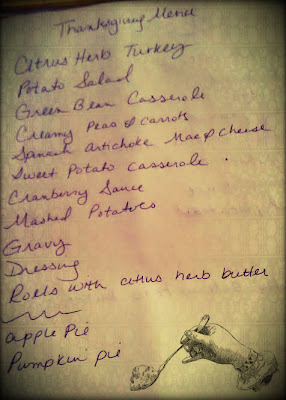 Thanksgiving Menu
Citrus Herb Turkey
Potato Salad
Green Bean Casserole
Creamy Peas & Carrots
Spinach Artichoke Mac & Cheese
Sweet Potato Casserole.
Cranberry Sauce
Mashed Potatoes
Gravy
Dressing
Rolls with citrus herb butter
apple Pie
Pumpkin pie